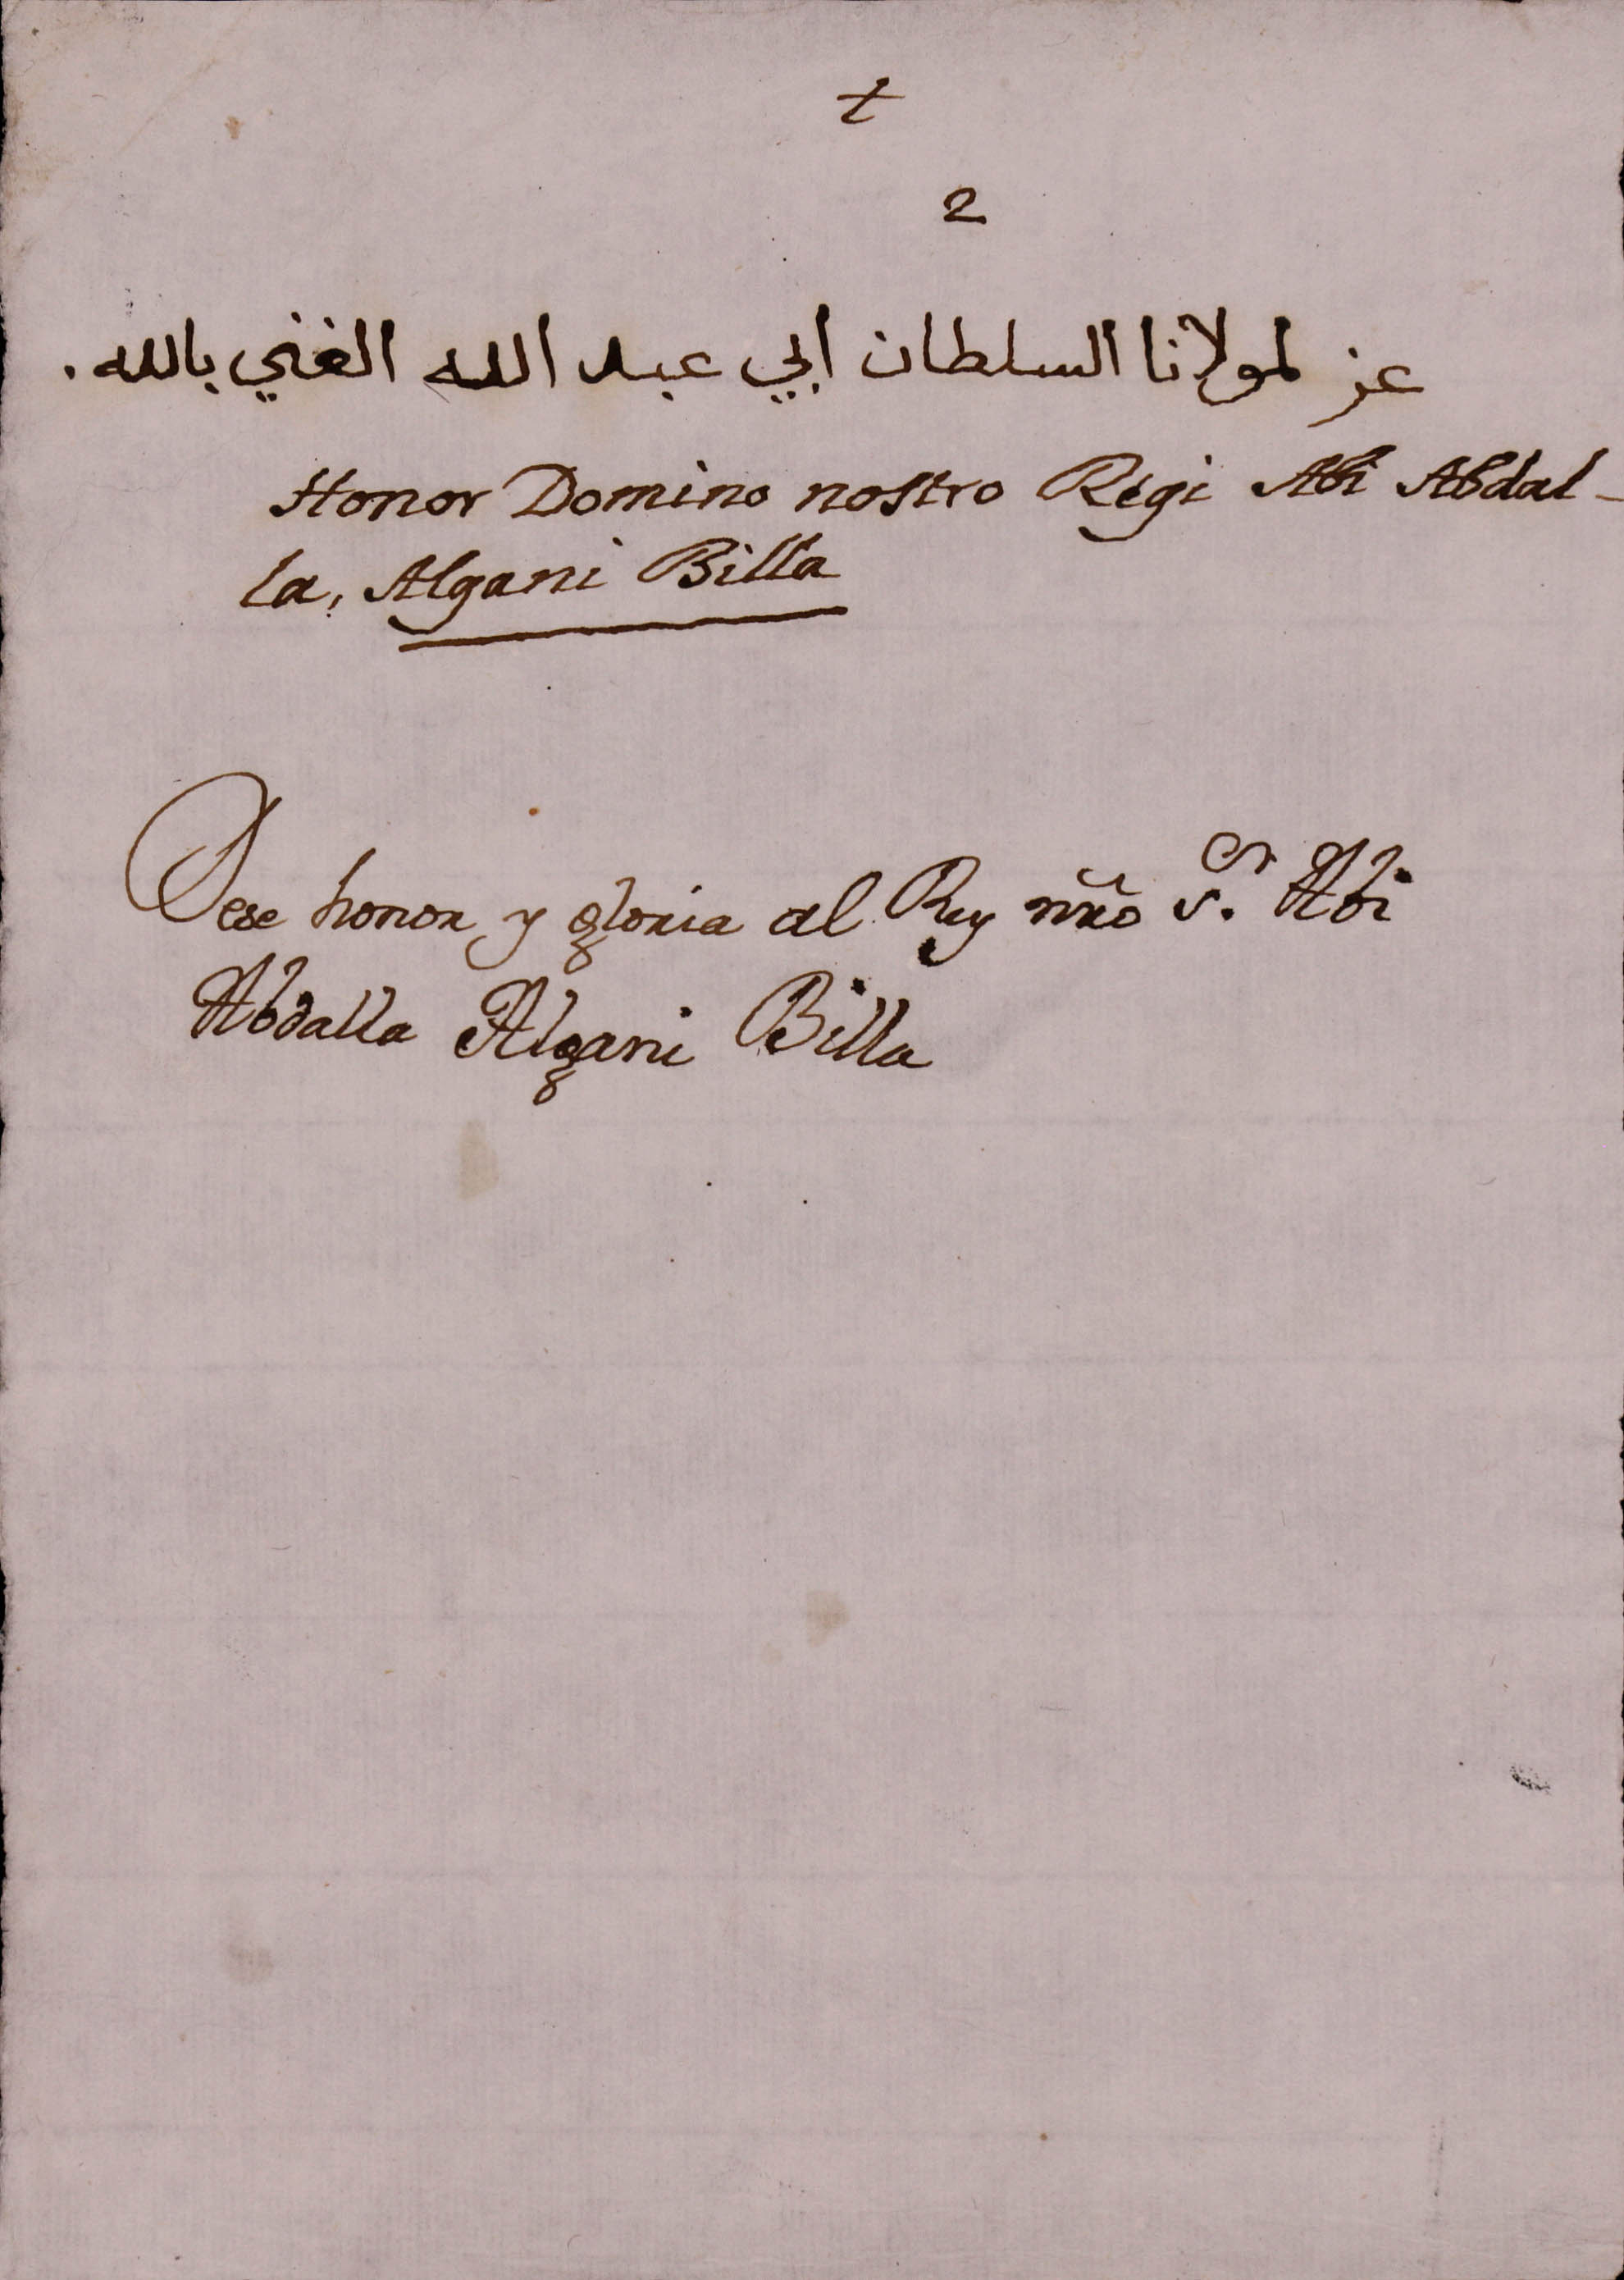 †
2
عز لمولانا السلطان ابي عبد الله الغني بالله.
Honor Domino nostro Regi Abi Abdal-
la, Algani Billa
Dese honor y gloria al Rey nr̃o S.or Abi
Abdalla Algani Billa